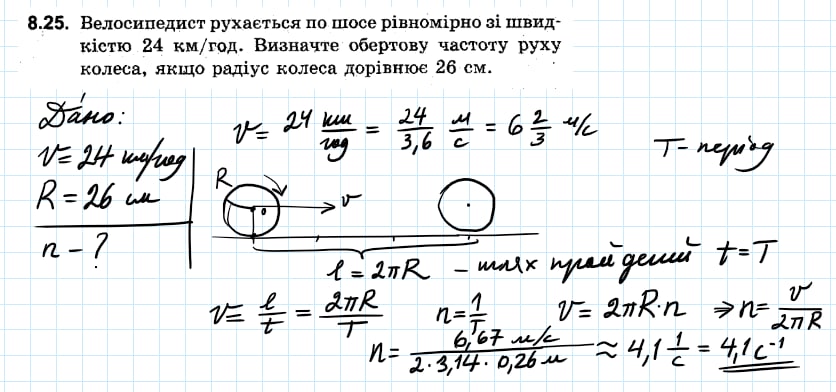 8.25. Велосипедист рухається по шосе рівномірно зі швид-
кістю 24 км/год. Визначте обертову частоту руху
колеса, якщо радіус колеса дорівнює 26 см.
Дано:
V= 24 км/год
R = 26 см
n - ?
V= 24 км/год = 24/3,6 м/с = 6 2/3 м/с
T - період
R
v
l = 2πR - шлях пройдений t = T
V= l/t = 2πR/T
n= 1/T
V= 2πR·n ⇒ n= v/2πR
n= 6,67 м/с / 2·3,14·0,26 м ≈ 4,1 1/с = 4,1 с⁻¹